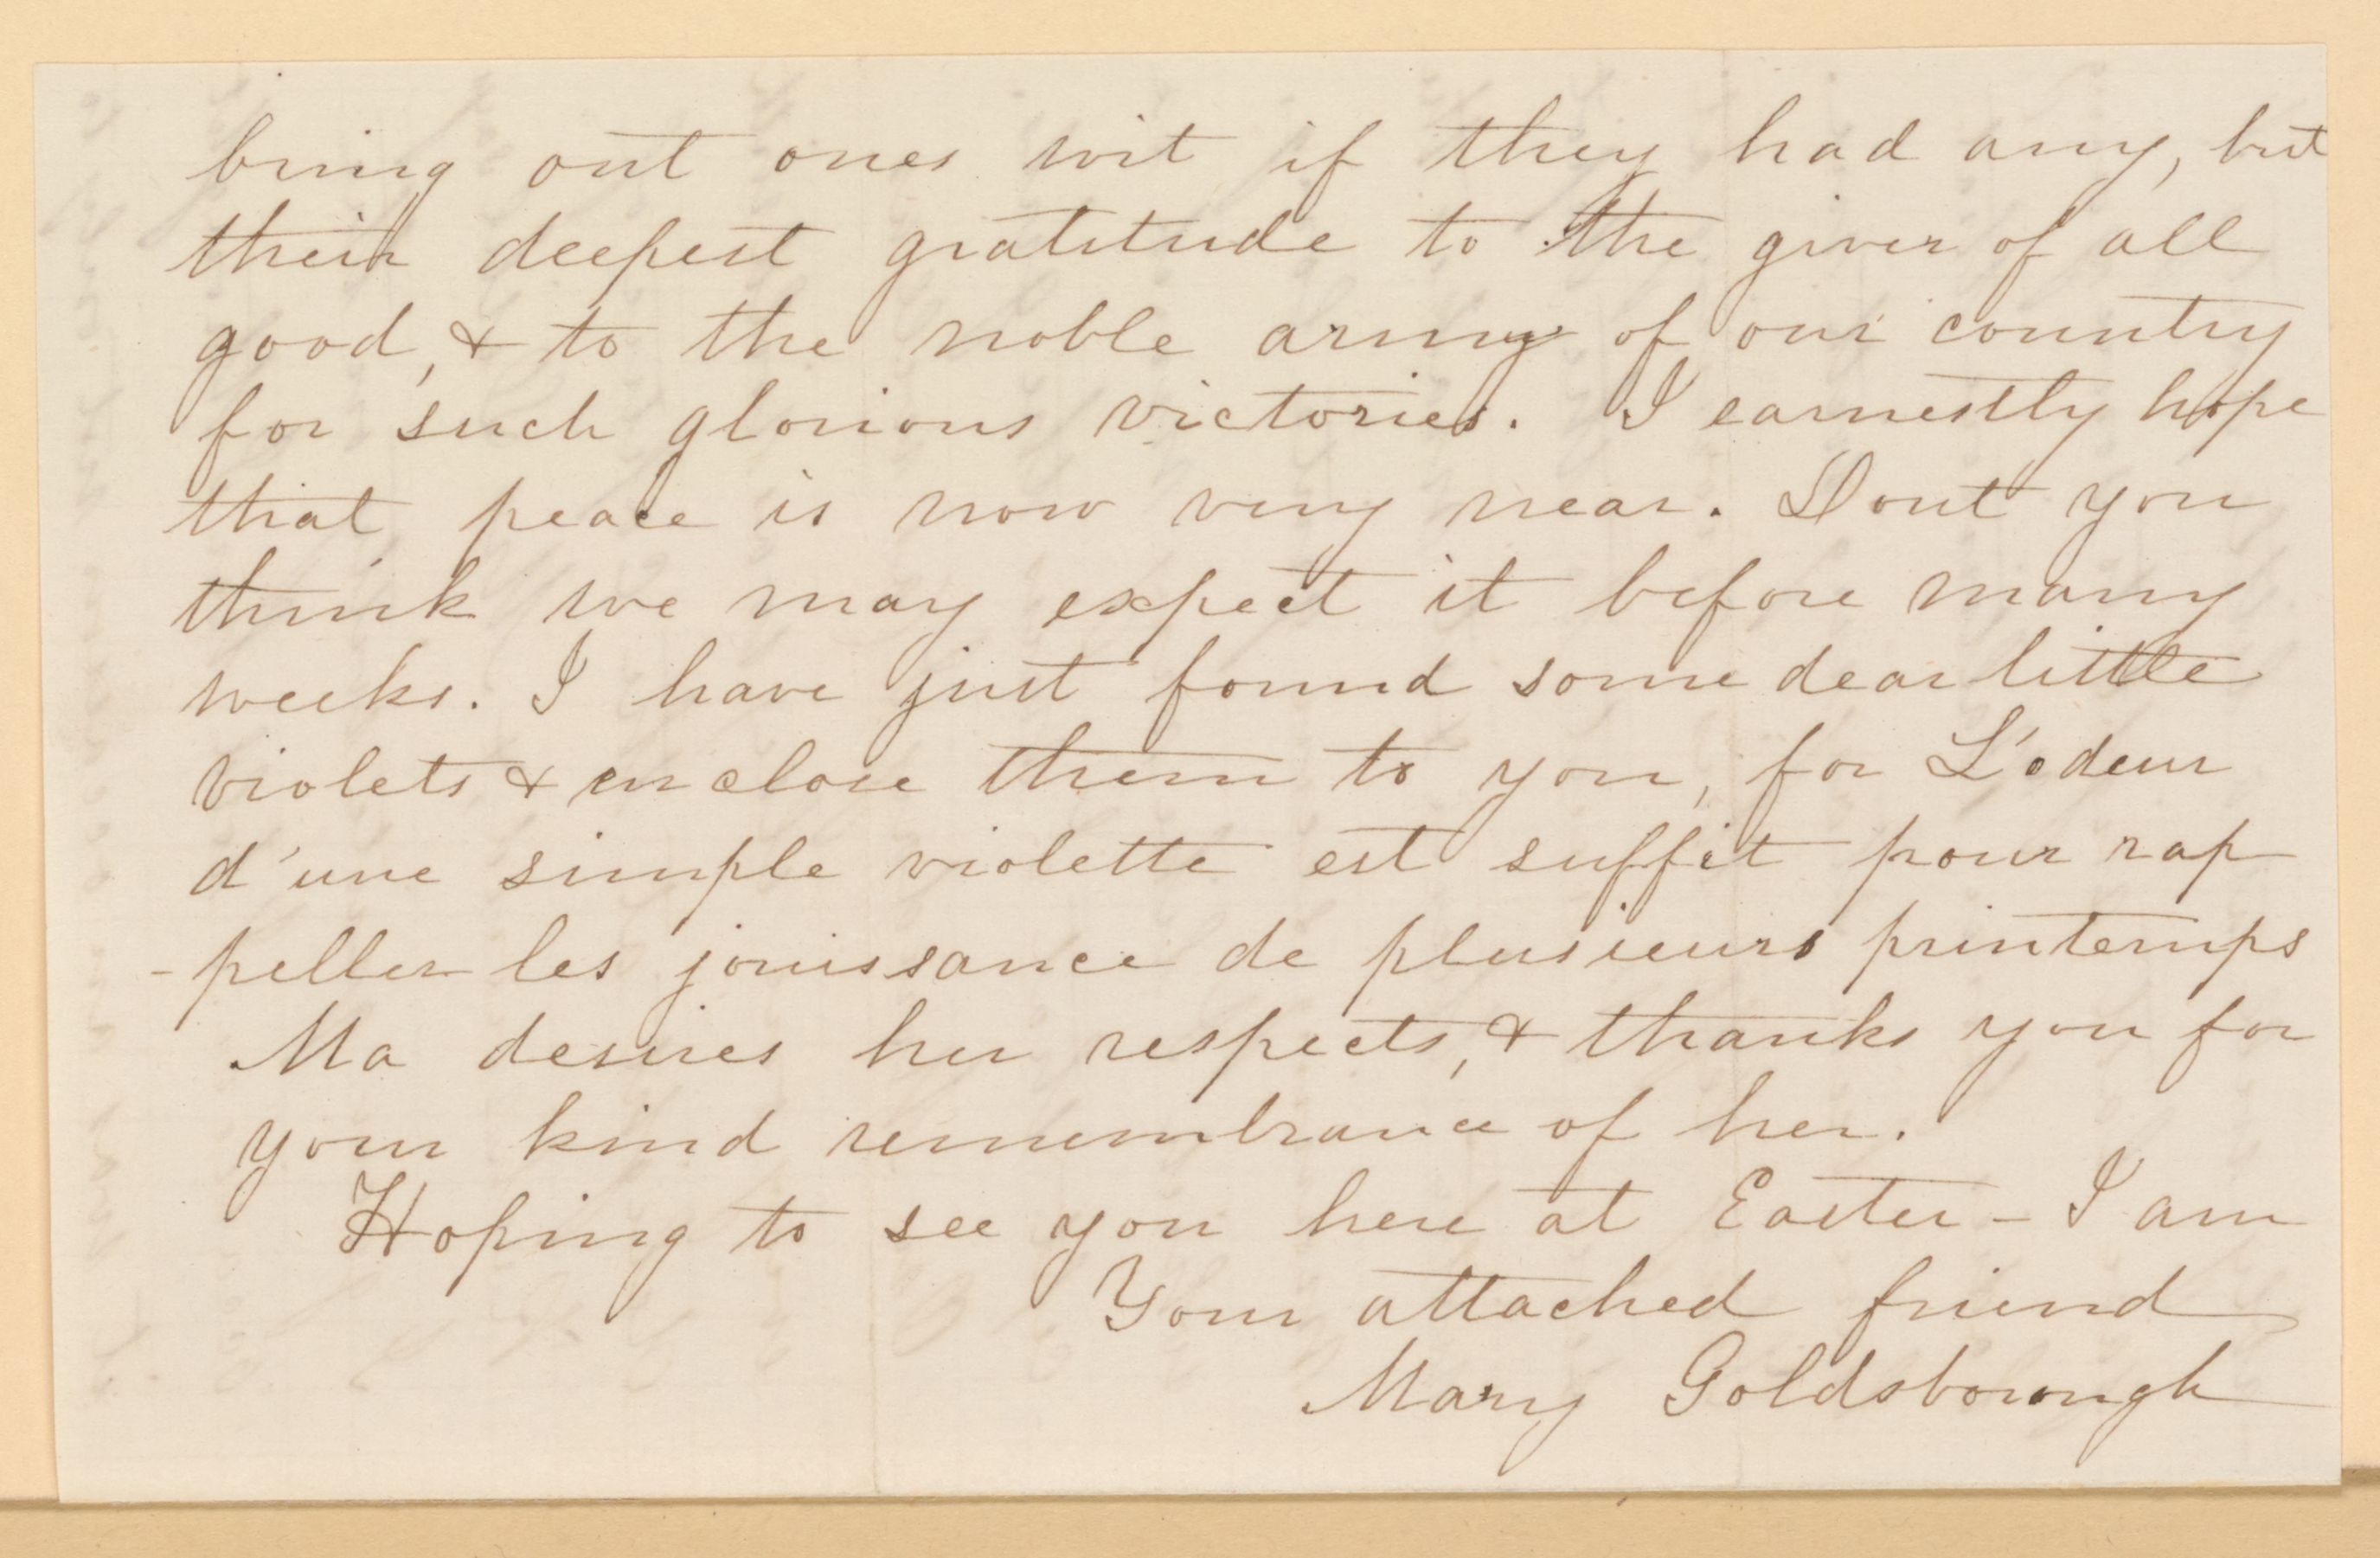 bring out ones wit if they had any, but
their deepest gratitude to the giver of all
good, & to the noble army of our country
for such glorious victories. I earnestly hope
that peace is now very near. Dont you
think we may expect it before many
weeks. I have just found some dear little
violets & enclose them to you, for L'odeur
d'une simple violette est suffit pour rap
-peller les jouissance de plusieurs printemps
Ma desires her respects, & thanks you for
your kind remembrance of her.
Hoping to see you here at Easter - I am
Your attached friend
Mary Goldsborough